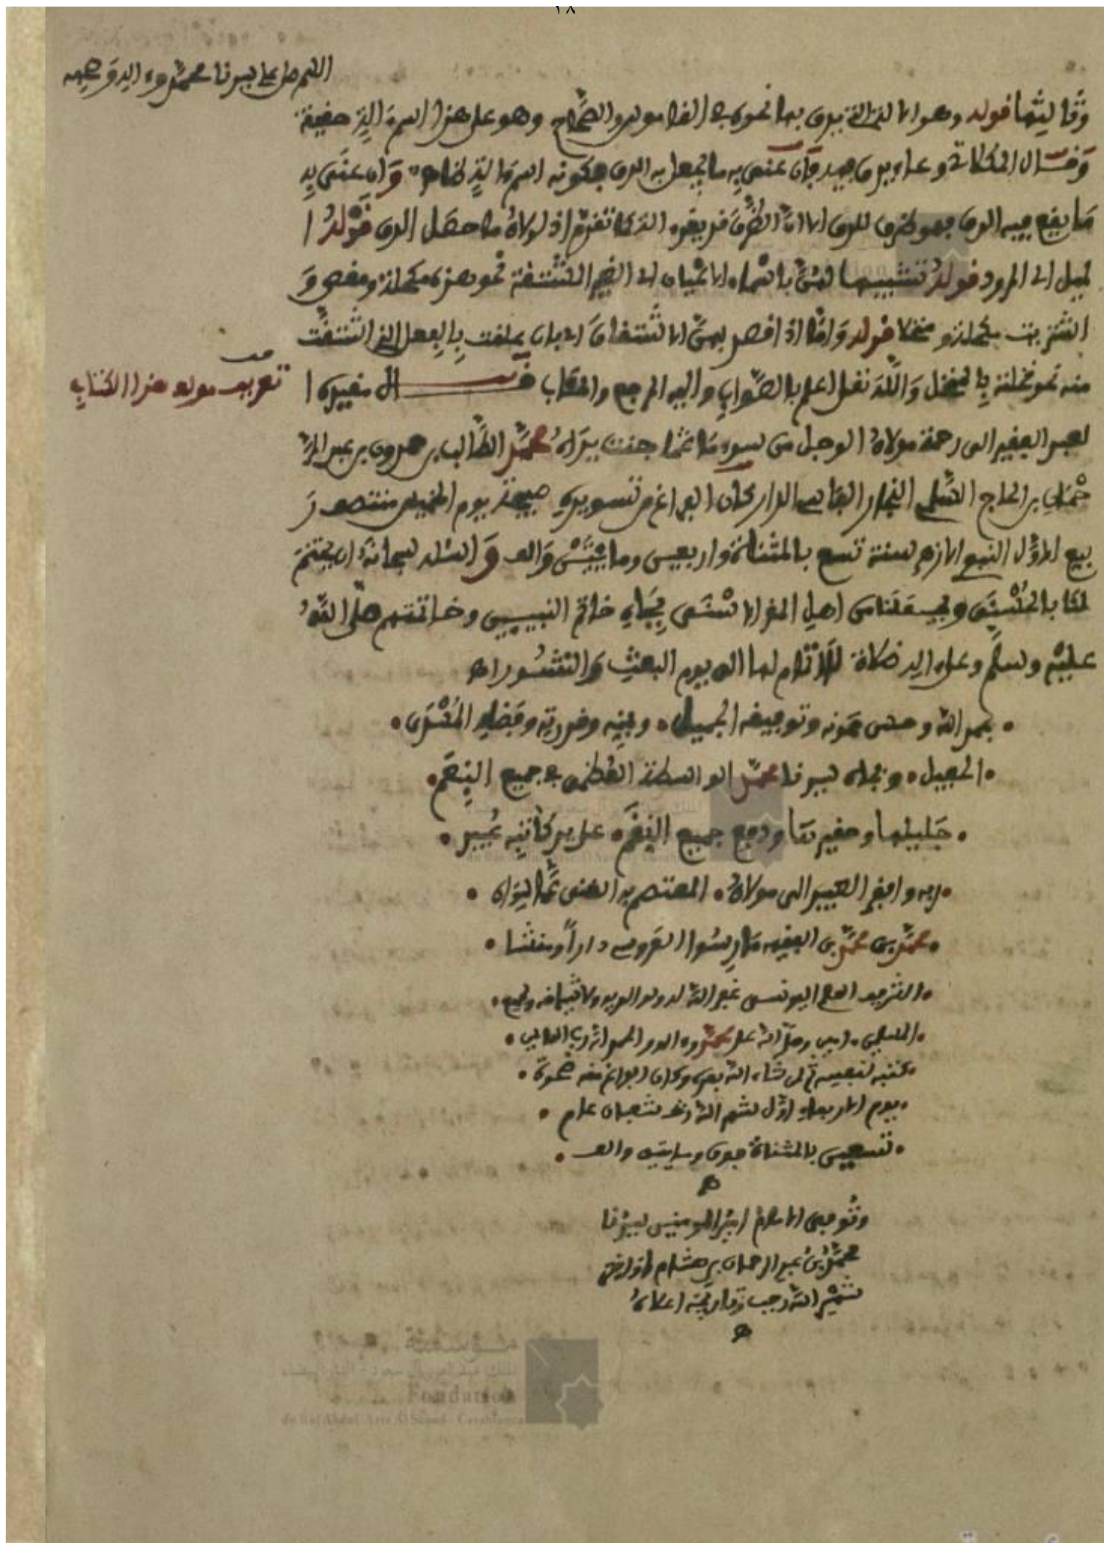 ١٨
اللهم صل على سيدنا محمد وءاله وصحبه
وثالثها قوله وهو الالة التي يبرى بها نحوه في القاموس والصحاح وهو على هذا اسم الة حقيقة
وقال المكلاتي وعليه فإن عنى به ما يجعل به الدق فكونه اسم الة ظاهر وان عنى به
ما يقع فيه الدق فهو ظرف للدق الا ان الظرف قد يقوم الة كما تقدم اذ لولاه ما حصل الدق قوله ا
لميل اي المرود قوله تشبيها لهن باسماء الاعيان اي الغير المشتقة نحو هذه مكحلة ومعي و
اشتريت مكحلة ومنخلا قوله واما اذا قصد بهن الاشتقاق اي بان علقت بالفعل الذي اشتقت
منه نحو نخلته بالمنخل والله تعلى اعلم بالصواب واليه المرجع والمئاب قال مقيده ا
تعريف مولف هذا الكتاب
لعبد الفقير الى رحمة مولاه الوجل من سوء ما جنت يداه محمد الطالب بن حمدون بن عبد الر
حمان بن الحاج السلمي النجار الفاسي الدار كان الفراغ من تسويده صبيحة يوم الخميس منتصف ر
بيع الاول النبوي الازهر سنة تسع بالمثناة واربعين ومايتين والف والله اسئل سبحانه ان يختم
لنا بالحسنى ويجعلنا من اهل المقر الاسنى بجاه خاتم النبيين وخاتمتهم صلى الله
عليه وسلم وعلى اله صلاة لا تمام لها الى يوم البعث والنشور اه
بحمد الله وحسن عونه وتوفيقه الجميل ويمنه وقدرته وفضله
الجميل وبجاه سيدنا محمد الواسطة العظمى في جميع النعم
جليلها وحقيرها ودفع جميع النقم على يد كاتبه عبيد
ربه وافقر العبيد الى مولاه المعتصم به الغني عمن سواه
محمد بن محمد بن الفقيه دارا ومنشئا
غفر الله له ولوالديه ولاشياخه ولجميع
المسلمين ءامين وصلى الله على محمد وءاله والحمد لله رب العالمين
كتبه لنفسه ثم لمن شاء الله بعده وكان الفراغ منه ضحوة
يوم الاربعاء اول شهر الله شعبان عام
تسعين بالمثناة فوق ومايتين والف
وتوفي الامام امير المومنين سيدنا
محمد بن عبد الرحمان بن هشام
شهر الله رجب تاريخه اعلاه